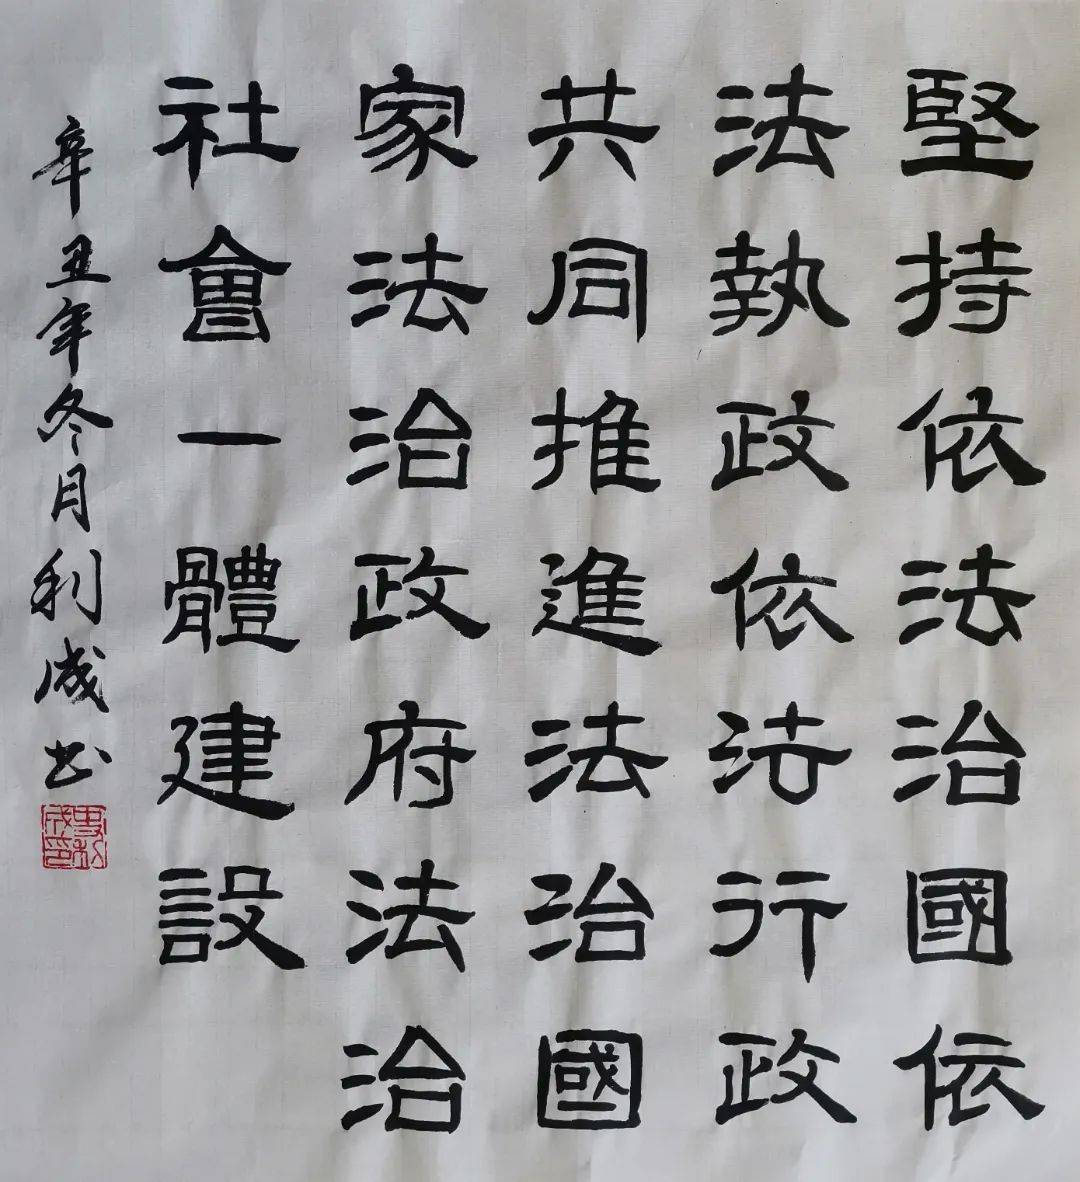 堅持依法治國依
法執政依法行政
共同推進法治國
家法治政府法治
社會一體建設
辛丑年冬月利成书